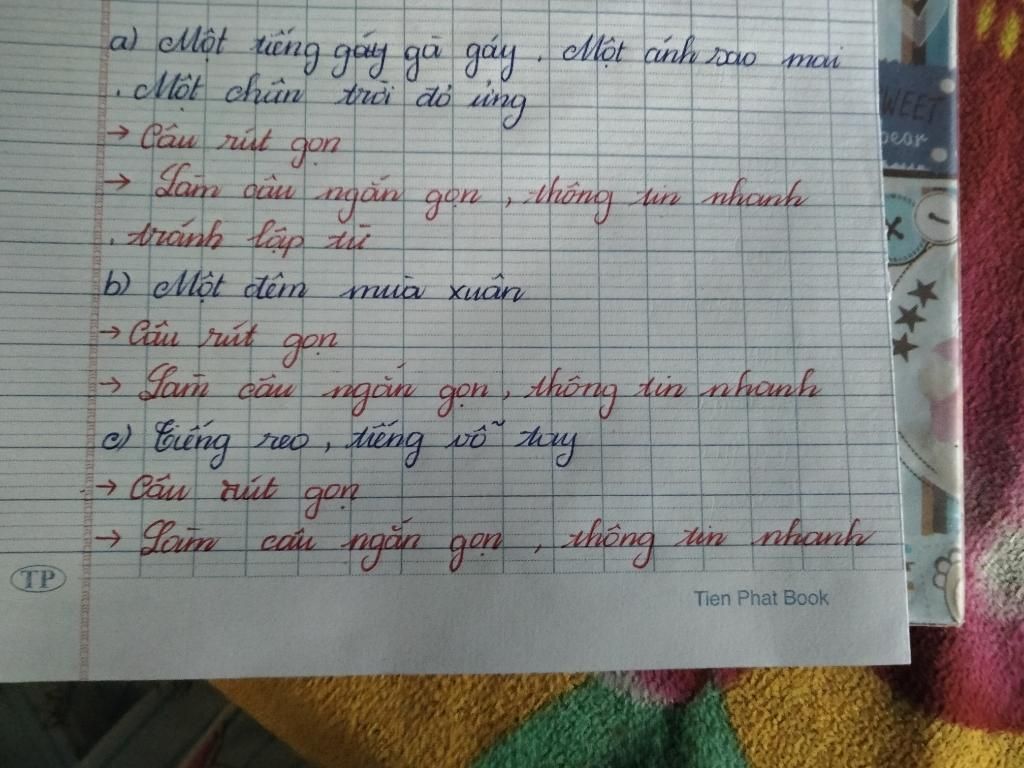 a) Một tiếng gáy gà gáy. Một ánh sao mai
. Một chân trời đỏ ửng
→ Câu rút gọn
→ Làm câu ngắn gọn, thông tin nhanh
, tránh lặp từ
b) Một đêm mùa xuân
→ Câu rút gọn
→ Làm câu ngắn gọn, thông tin nhanh
c) Tiếng reo, tiếng vỗ tay
→ Câu rút gọn
→ Làm câu ngắn gọn, thông tin nhanh
TP
Tien Phat Book
WEET
bear